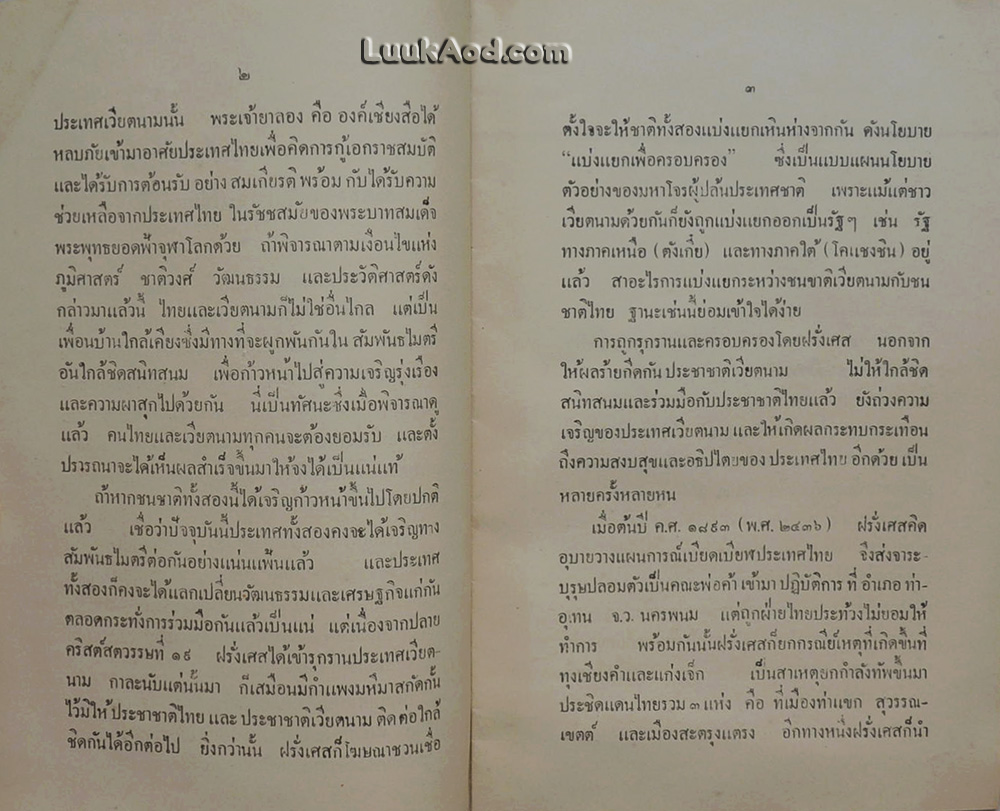 LuukAod.com
๒
ประเทศเวียตนามนั้น พระเจ้ายาลอง คือ องค์เชียงสือได้
หลบภัยเข้ามาอาศัยประเทศไทยเพื่อคิดการกู้เอกราชสมบัติ
และได้รับการต้อนรับ อย่าง สมเกียรติ พร้อม กับได้รับความ
ช่วยเหลือจากประเทศไทย ในรัชชสมัยของพระบาทสมเด็จ
พระพุทธยอดฟ้าจุฬาโลกด้วย ถ้าพิจารณาตามเงื่อนไขแห่ง
ภูมิศาสตร์ ชาติวงศ์ วัฒนธรรม และประวัติศาสตร์ดัง
กล่าวมาแล้วนี้ ไทยและเวียตนามก็ไม่ใช่อื่นไกล แต่เป็น
เพื่อนบ้านใกล้เคียงซึ่งมีทางที่จะผูกพันกันใน สัมพันธไมตรี
อันใกล้ชิดสนิทสนม เพื่อก้าวหน้าไปสู่ความเจริญรุ่งเรือง
และความผาสุกไปด้วยกัน นี่เป็นทัศนะซึ่งเมื่อพิจารณาดู
แล้ว คนไทยและเวียตนามทุกคนจะต้องยอมรับ และตั้ง
ปรารถนาจะได้เห็นผลสำเร็จขึ้นมาให้จงได้เป็นแน่แท้
ถ้าหากชนชาติทั้งสองนี้ได้เจริญก้าวหน้าขึ้นไปโดยปกติ
แล้ว เชื่อว่าปัจจุบันนี้ประเทศทั้งสองคงจะได้เจริญทาง
สัมพันธไมตรีต่อกันอย่างแน่นแฟ้นแล้ว และประเทศ
ทั้งสองก็คงจะได้แลกเปลี่ยนวัฒนธรรมและเศรษฐกิจแก่กัน
ตลอดกระทั่งการร่วมมือกันแล้วเป็นแน่ แต่เนื่องจากปลาย
คริสต์สตวรรษที่ ๑๙ ฝรั่งเศสได้เข้ารุกรานประเทศเวียต-
นาม กาละนับแต่นั้นมา ก็เสมือนมีกำแพงมหึมาสกัดกั้น
ไว้มิให้ ประชาชาติไทย และ ประชาชาติเวียตนาม ติด ต่อใกล้
ชิดกันได้อีกต่อไป ยิ่งกว่านั้น ฝรั่งเศสก็โฆษณาชวนเชื่อ
๓
ตั้งใจจะให้ชาติทั้งสองแบ่งแยกเหินห่างจากกัน ดังนโยบาย
“แบ่งแยกเพื่อครอบครอง” ซึ่งเป็นแบบแผนนโยบาย
ตัวอย่างของมหาโจรผู้ปล้นประเทศชาติ เพราะแม้แต่ชาว
เวียตนามด้วยกันก็ยังถูกแบ่งแยกออกเป็นรัฐๆ เช่น รัฐ
ทางภาคเหนือ (ตังเกี๋ย) และทางภาคใต้ (โคแชงชิน) อยู่
แล้ว สาอะไรการแบ่งแยกระหว่างชนชาติเวียตนามกับชน
ชาติไทย ฐานะเช่นนี้ย่อมเข้าใจได้ง่าย
การถูกรุกรานและครอบครองโดยฝรั่งเศส นอกจาก
ให้ผลร้ายกีดกัน ประชาชาติเวียตนาม ไม่ให้ใกล้ชิด
สนิทสนมและร่วมมือกับประชาชาติไทยแล้ว ยังถ่วงความ
เจริญของประเทศเวียตนาม และให้เกิดผลกระทบกระเทือน
ถึงความสงบสุขและอธิปไตยของ ประเทศไทย อีกด้วย เป็น
หลายครั้งหลายหน
เมื่อต้นปี ค.ศ. ๑๘๙๓ (พ.ศ. ๒๔๓๖) ฝรั่งเศสคิด
อุบายวางแผนการณ์เบียดเบียฬประเทศไทย จึงส่งจาระ-
บุรุษปลอมตัวเป็นคณะพ่อค้า เข้ามา ปฏิบัติการ ที่ อำเภอ ท่า-
อุเทน จ.ว. นครพนม แต่ถูกฝ่ายไทยประท้วงไม่ยอมให้
ทำการ พร้อมกันนั้นฝรั่งเศสก็ยกกรณีย์เหตุที่เกิดขึ้นที่
ทุงเชียงคำและแก่งเจ็ก เป็นสาเหตุยกกำลังทัพขึ้นมา
ประชิดแดนไทยรวม ๓ แห่ง คือ ที่เมืองท่าแขก สุวรรณ-
เขตต์ และเมืองสะตรุงแตรง อีกทางหนึ่งฝรั่งเศสก็นำ